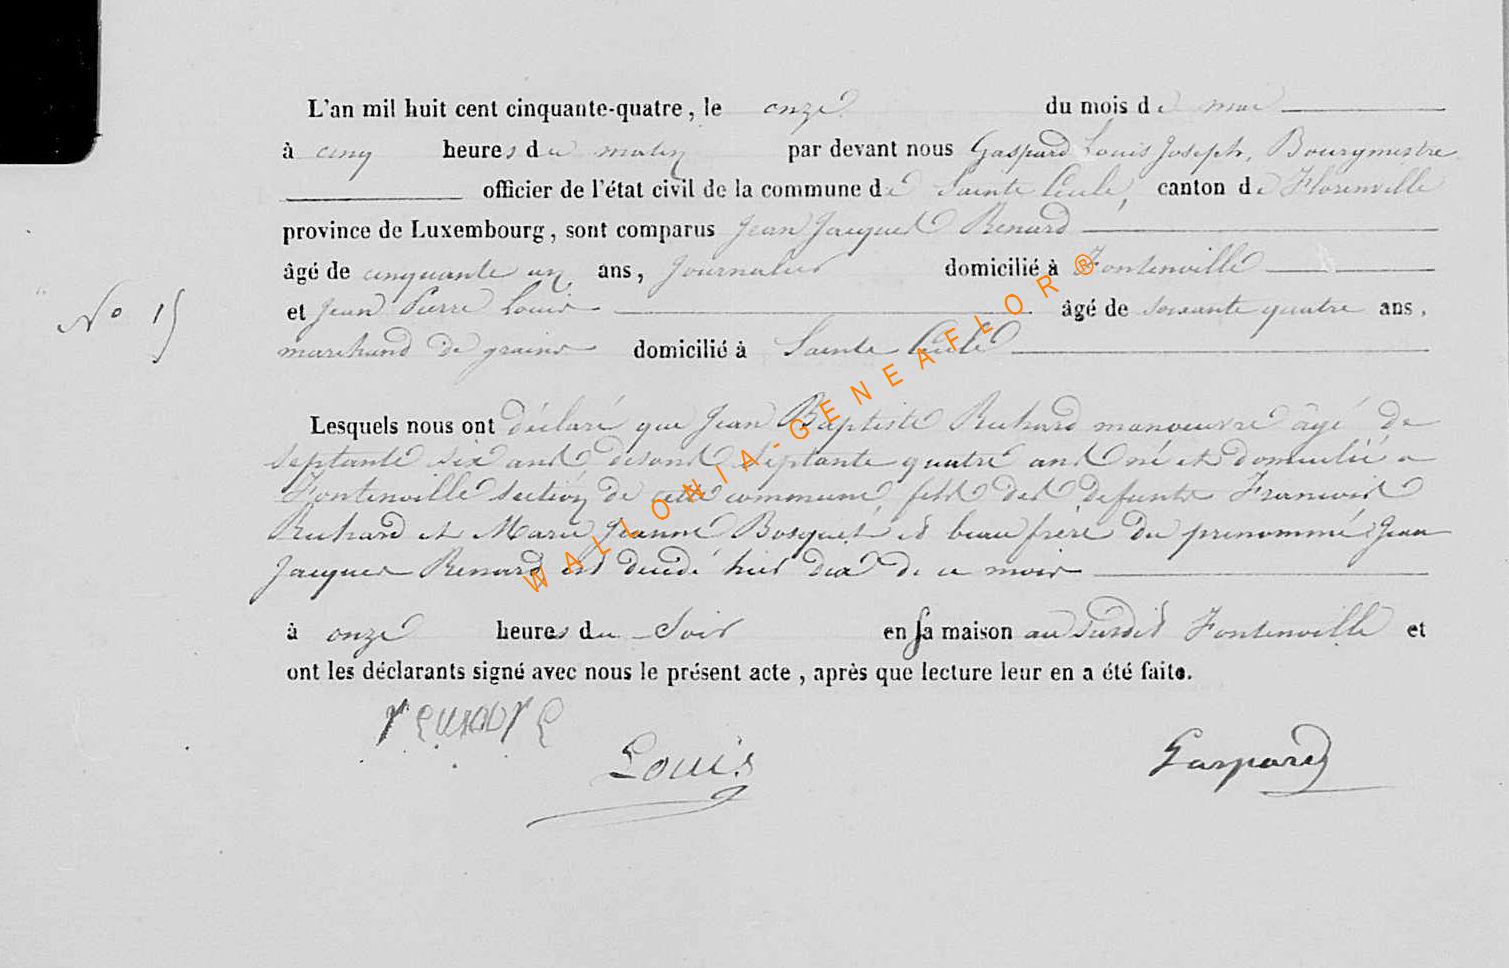 L'an mil huit cent cinquante-quatre, le onze du mois de mai
à cinq heures du matin par devant nous Gaspard Louis Joseph, Bourgmestre
officier de l'état civil de la commune de Sainte Cécile, canton de Florenville
province de Luxembourg, sont comparus Jean Jacques Renard
âgé de cinquante un ans, Journalier domicilié à Fontenoille
et Jean Pierre Louis âgé de soixante quatre ans,
No 15
marchand de grains domicilié à Sainte Cécile
Lesquels nous ont déclaré que Jean Baptiste Richard manoeuvre âgé de
septante six ans septante quatre ans né et domicilié à
Fontenoille section de cette commune, fils des défunts François
Richard et Marie Jeanne Bosquet et beau frère du prénommé Jean
Jacques Renard est décédé hier dix de ce mois
à onze heures du Soir en sa maison au susdit Fontenoille et
ont les déclarants signé avec nous le présent acte, après que lecture leur en a été faite.
Louis
Gaspard
WALLONIA-GENEAFLOR®